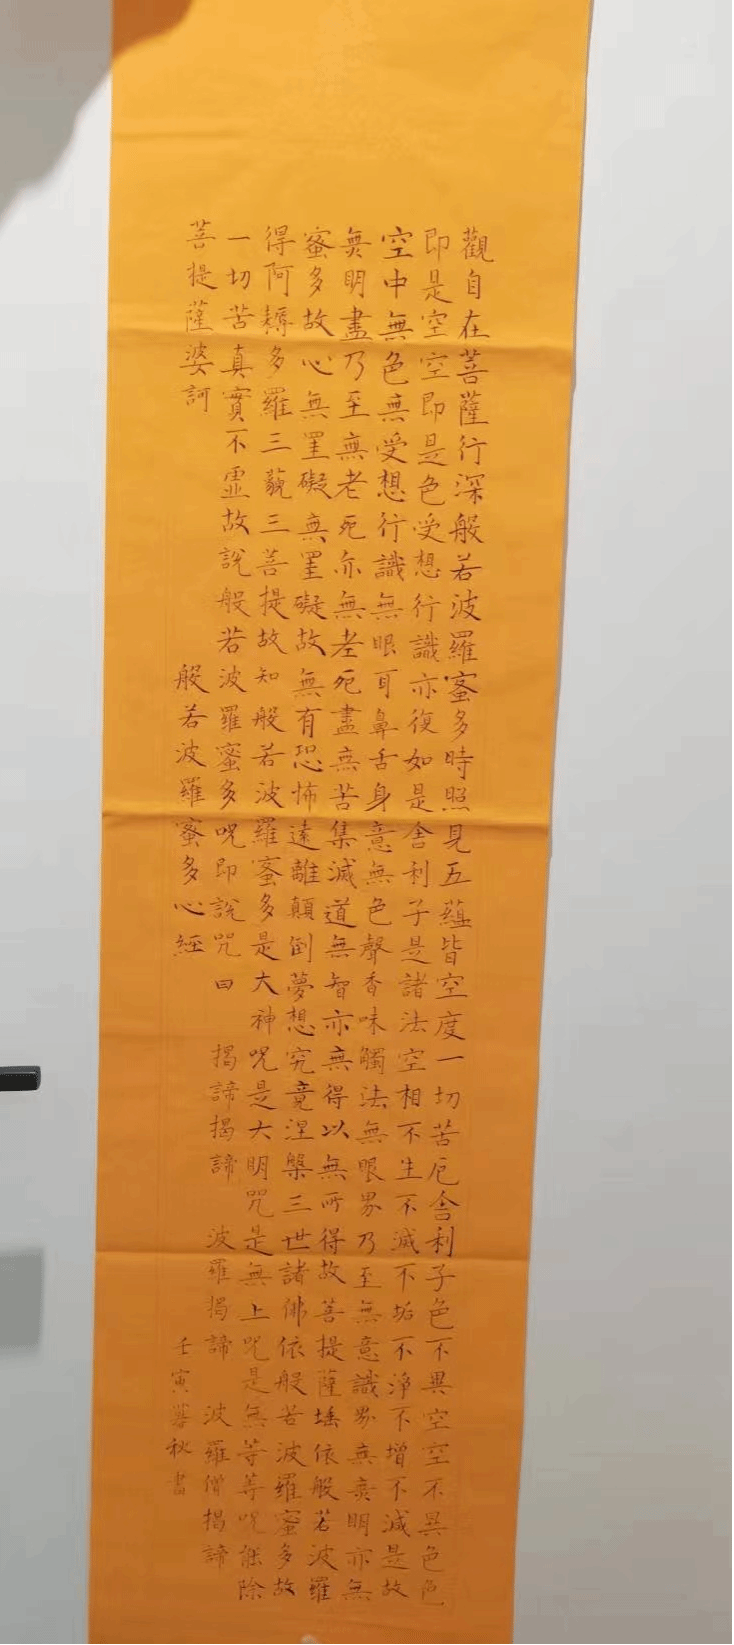 觀自在菩薩行深般若波羅蜜多時照見五蘊皆空度一切苦厄舍利子色不異空空不異色色
即是空空即是色受想行識亦復如是舍利子是諸法空相不生不滅不垢不淨不增不減是故
空中無色無受想行識無眼耳鼻舌身意無色聲香味觸法無眼界乃至無意識界無無明亦無
無明盡乃至無老死亦無老死盡無苦集滅道無智亦無得以無所得故菩提薩埵依般若波羅
蜜多故心無罣礙無罣礙故無有恐怖遠離顛倒夢想究竟涅槃三世諸佛依般若波羅蜜多故
得阿耨多羅三藐三菩提故知般若波羅蜜多是大神呪是大明咒是無上呪是無等等呪能除
一切苦真實不虛故說般若波羅蜜多呪即說咒曰 揭諦揭諦 波羅揭諦 波羅僧揭諦
菩提薩婆訶 般若波羅蜜多心經 壬寅暮秋書